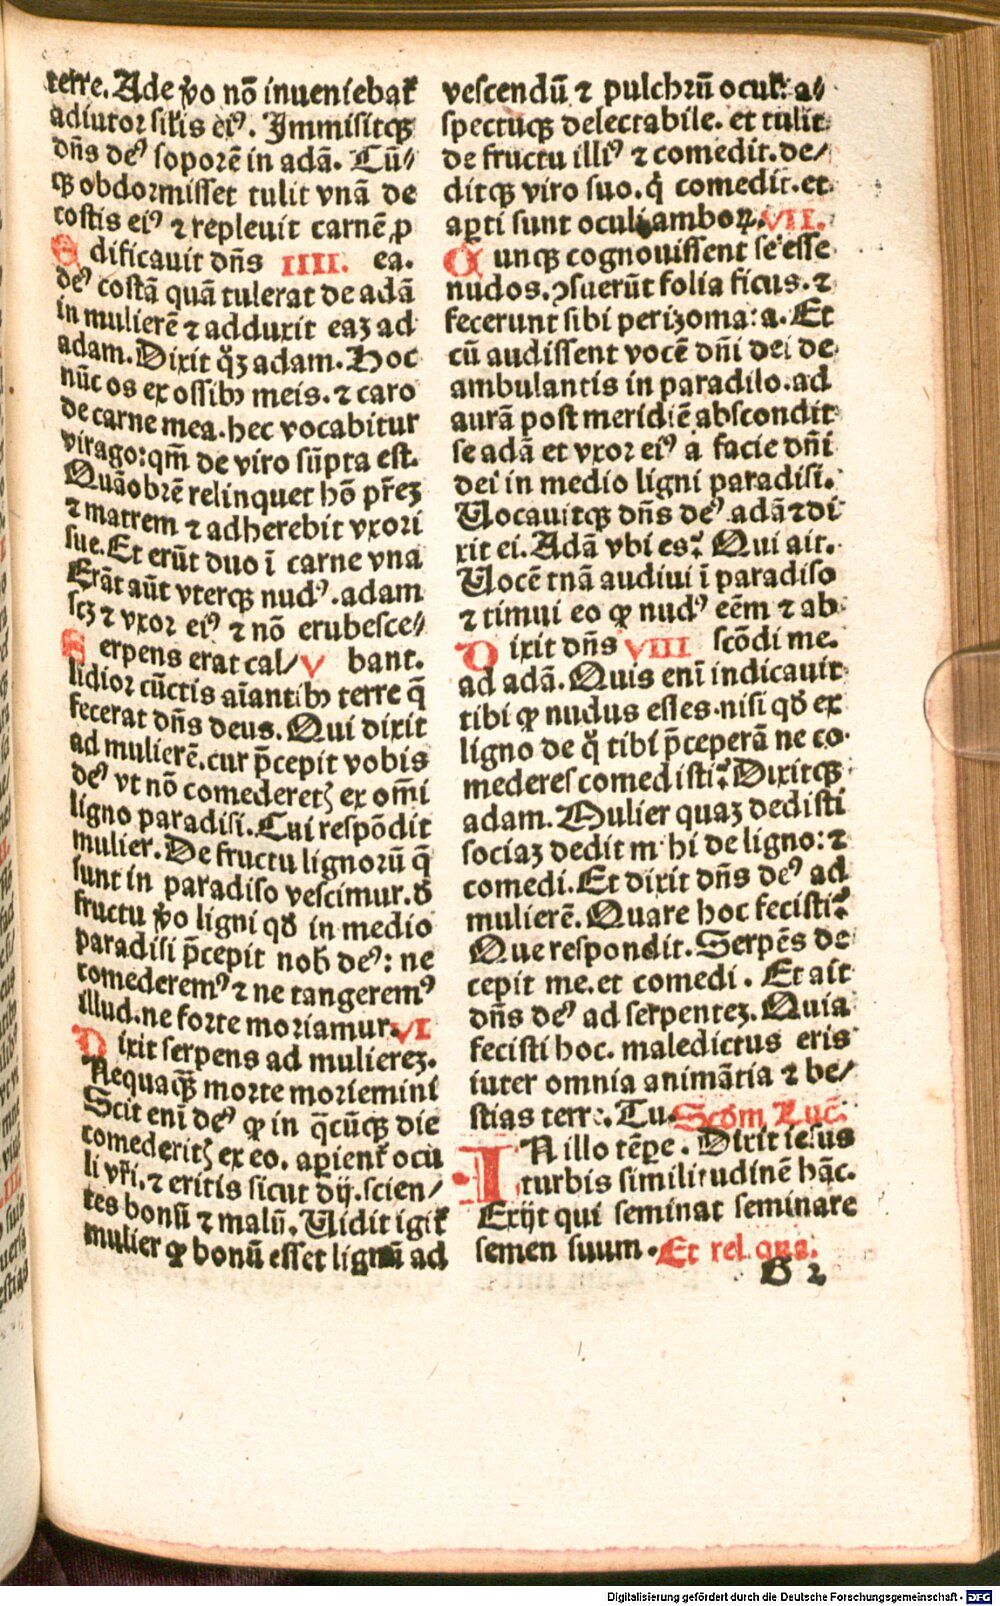 terre. Ade ṽo nō inueniebat᷑
adiutor sil̃is eiꝰ. Immisitqꝫ
dñs deꝰ soporē in adā. Cū⸗
qꝫ obdormisset tulit vnā de
costis eiꝰ ⁊ repleuit carnē ꝓ
Edificauit dñs IIII. ea.
deꝰ costā quā tulerat de adā
in mulierē ⁊ adduxit eaꝫ ad
adam. Dixit qꝫ adam. Hoc
nūc os ex ossibꝰ meis. ⁊ caro
de carne mea. hec vocabitur
virago: qm̄ de viro sūpta est.
Quāobrē relinquet hō pr̃eꝫ
⁊ matrem ⁊ adherebit vxori
sue. Et erūt duo ī carne vna
Erāt aūt vterqꝫ nudꝰ. adam
scꝫ ⁊ vxor eiꝰ ⁊ nō erubesce⸗
Serpens erat cal⸗ V bant.
lidior cūctis aīantibꝰ terre q̄
fecerat dñs deus. Qui dixit
ad mulierē. cur p̄cepit vobis
deꝰ vt nō comederetꝭ ex om̄i
ligno paradisi. Cui respōdit
mulier. De fructu lignorū q̄
sunt in paradiso vescimur. đ
fructu ṽo ligni qđ in medio
paradisi p̄cepit nob̄ deꝰ: ne
comederemꝰ ⁊ ne tangeremꝰ
illud. ne forte moriamur. VI
Dixit serpens ad muliereꝫ.
Nequaqꝫ morte moriemini
Scit enī deꝰ ꝙ in q̄cūqꝫ die
comederitꝭ ex eo. aꝑient᷑ ocu
li vr̃i. ⁊ eritis sicut dij. scien⸗
tes bonū ⁊ malū. Uidit igit᷑
mulier ꝙ bonū esset lignū ad
vescendū ⁊ pulchrū ocul: a⸗
spectuqꝫ delectabile. et tulit
de fructu illiꝰ ⁊ comedit. de⸗
ditqꝫ viro suo. q̇ comedit. et
aꝑti sunt oculi amboꝝ. VII.
Cunqꝫ cognouissent se esse
nudos. ꝯsuerūt folia ficus. ⁊
fecerunt sibi perizoma: a. Et
cū audissent vocē dñi dei de
ambulantis in paradiso. ad
aurā post meridiē abscondit
se adā et vxor eiꝰ a facie dñi
dei in medio ligni paradisi.
Uocauitqꝫ dñs deꝰ adā ⁊ di
xit ei. Adā vbi es? Qui ait.
Uocē tuā audiui ī paradiso
⁊ timui eo ꝙ nudꝰ eēm ⁊ ab
Dixit dñs VIII scōdi me.
ad adā. Quis enī indicauit
tibi ꝙ nudus esses. nisi qđ ex
ligno de q̇ tibi p̄ceperā ne co⸗
mederes comedisti? Dixitqꝫ
adam. Mulier quaꝫ dedisti
sociaꝫ dedit m hi de ligno: ⁊
comedi. Et dixit dñs deꝰ ad
mulierē. Quare hoc fecisti?
Que respondit. Serpēs de
cepit me. et comedi. Et ait
dñs deꝰ ad serpenteꝫ. Quia
fecisti hoc. maledictus eris
iuter omnia animātia ⁊ be⸗
stias terre. Tu. Scđm Luc̄.
IN illo tēpe. Dixit iesus
turbis similitudinē hāc.
Exijt qui seminat seminare
semen suum. Et rel qua.
B 2
Digitalisierung gefördert durch die Deutsche Forschungsgemeinschaft - DFG